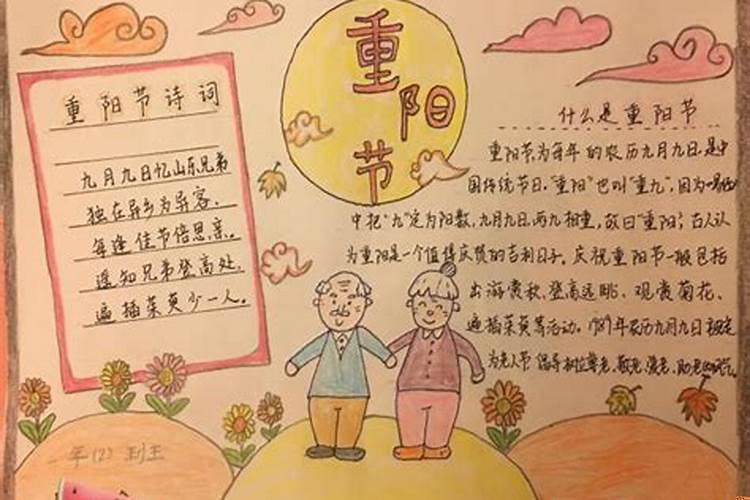 重阳节
重阳节诗词
九月九日忆山东兄弟
独在异乡为异客，
每逢佳节倍思亲。
遥知兄弟登高处，
遍插茱萸少一人。
什么是重阳节
重阳节,为每年的农历九月九日,是中
国传统节日。“重阳”也叫“重九”,因为
中把“九”定为阳数,九月九日,两九相重,故曰“重阳”;古人认
为重阳是一个值得庆贺的吉利日子。庆祝重阳节一般包括
出游赏秋、登高远眺、观赏菊花、
遍插茱萸等活动。1989年农历九月九日被定
为老人节 倡导树立尊老、敬老、爱老、助老的
年(2)